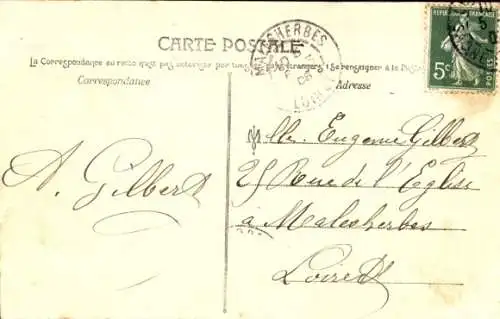 CARTE POSTALE
La Correspondance au recto n'est pas acceptée par tous les pays étrangers (Se renseigner à la Poste)
Correspondance
Adresse
MALESHERBES
LOIRET
5c
POSTES
A. Gilbert
Mlle. Eugenie Gilbert
25 Rue de l'Eglise
à Malesherbes
Loiret